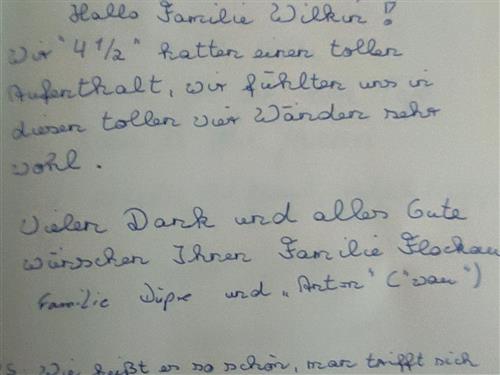 Hallo Familie Wilkin!
Wir "4 1/2" hatten einen tollen
Aufenthalt, wir fühlten uns in
diesen tollen vier Wänden sehr
wohl.
Vielen Dank und alles Gute
wünschen Ihnen Familie Flockau
Familie Düpre und „Anton" ("wau")
Wie heißt es so schön, man trifft sich